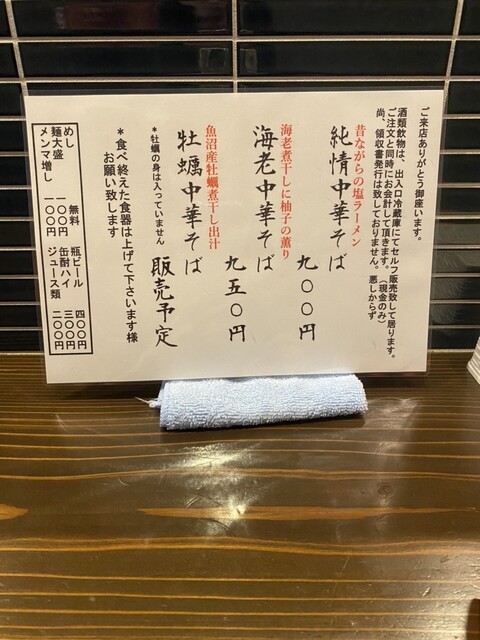 ご来店ありがとう御座います。
酒類飲物は、出入口冷蔵庫にてセルフ販売致して居ります。
ご注文と同時にお会計して頂きます。(現金のみ)
尚、領収書発行は致しておりません。悪しからず
昔ながらの塩ラーメン
純情中華そば 九〇〇円
海老煮干しに柚子の薫り
海老中華そば 九五〇円
魚沼産牡蠣煮干し出汁
牡蠣中華そば 販売予定
*牡蠣の身は入っていません
*食べ終えた食器は上げて下さいます様
お願い致します
めし 無料
麺大盛 一〇〇円
メンマ増し 一〇〇円
瓶ビール 四〇〇円
缶酎ハイ 三〇〇円
ジュース類 二〇〇円